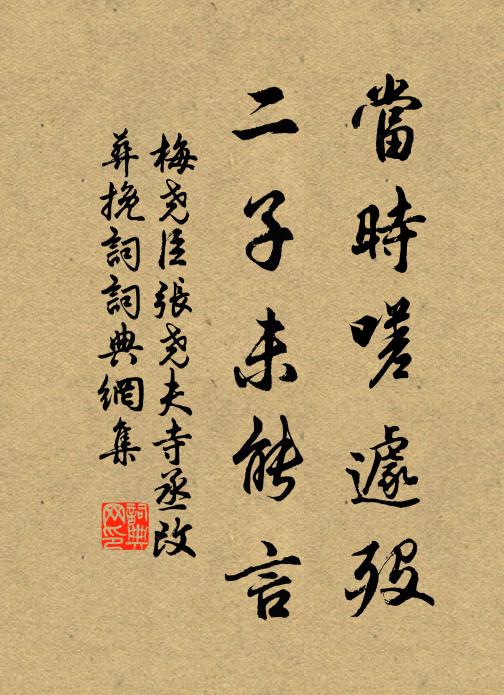 當時嗟遽歿
二子未能言
梅堯臣張堯夫寺丞改
葬挽詞詞典網集
詞典
网印